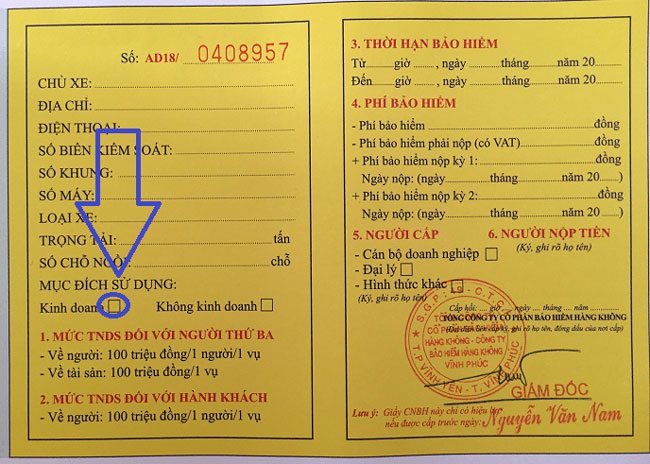 Số: AD18/ 0408957
CHỦ XE:
ĐỊA CHỈ:
ĐIỆN THOẠI:
SỐ BIỂN KIỂM SOÁT:
SỐ KHUNG:
SỐ MÁY:
LOẠI XE:
TRỌNG TẢI: tấn
SỐ CHỖ NGỒI: chỗ
MỤC ĐÍCH SỬ DỤNG:
Kinh doanh Không kinh doanh
1. MỨC TNDS ĐỐI VỚI NGƯỜI THỨ BA
- Về người: 100 triệu đồng/1 người/1 vụ
- Về tài sản: 100 triệu đồng/1 vụ
2. MỨC TNDS ĐỐI VỚI HÀNH KHÁCH
- Về người: 100 triệu đồng/1 người/1 vụ
3. THỜI HẠN BẢO HIỂM
Từ giờ , ngày tháng năm 20
Đến giờ , ngày tháng năm 20
4. PHÍ BẢO HIỂM
- Phí bảo hiểm đồng
- Phí bảo hiểm phải nộp (có VAT) đồng
+ Phí bảo hiểm nộp kỳ 1: đồng
Ngày nộp: (ngày tháng năm 20 )
+ Phí bảo hiểm nộp kỳ 2: đồng
Ngày nộp: (ngày tháng năm 20 )
5. NGƯỜI CẤP 6. NGƯỜI NỘP TIỀN
- Cán bộ doanh nghiệp (Ký, ghi rõ họ tên)
- Đại lý
- Hình thức khác
(Ký, ghi rõ họ tên)
Cấp hồi: giờ , ngày tháng năm
TỔNG CÔNG TY CỔ PHẦN BẢO HIỂM HÀNG KHÔNG
ký, ghi rõ họ tên, đóng dấu của nơi cấp)
HÀNG KHÔNG - CÔNG TY
BẢO HIỂM HÀNG KHÔNG
VĨNH PHÚC
T.P VĨNH YÊN - T. VĨNH PHÚC
GIÁM ĐỐC
Nguyễn Văn Nam
Lưu ý: Giấy CNBH này chỉ có hiệu lực
nếu được cấp trước ngày: